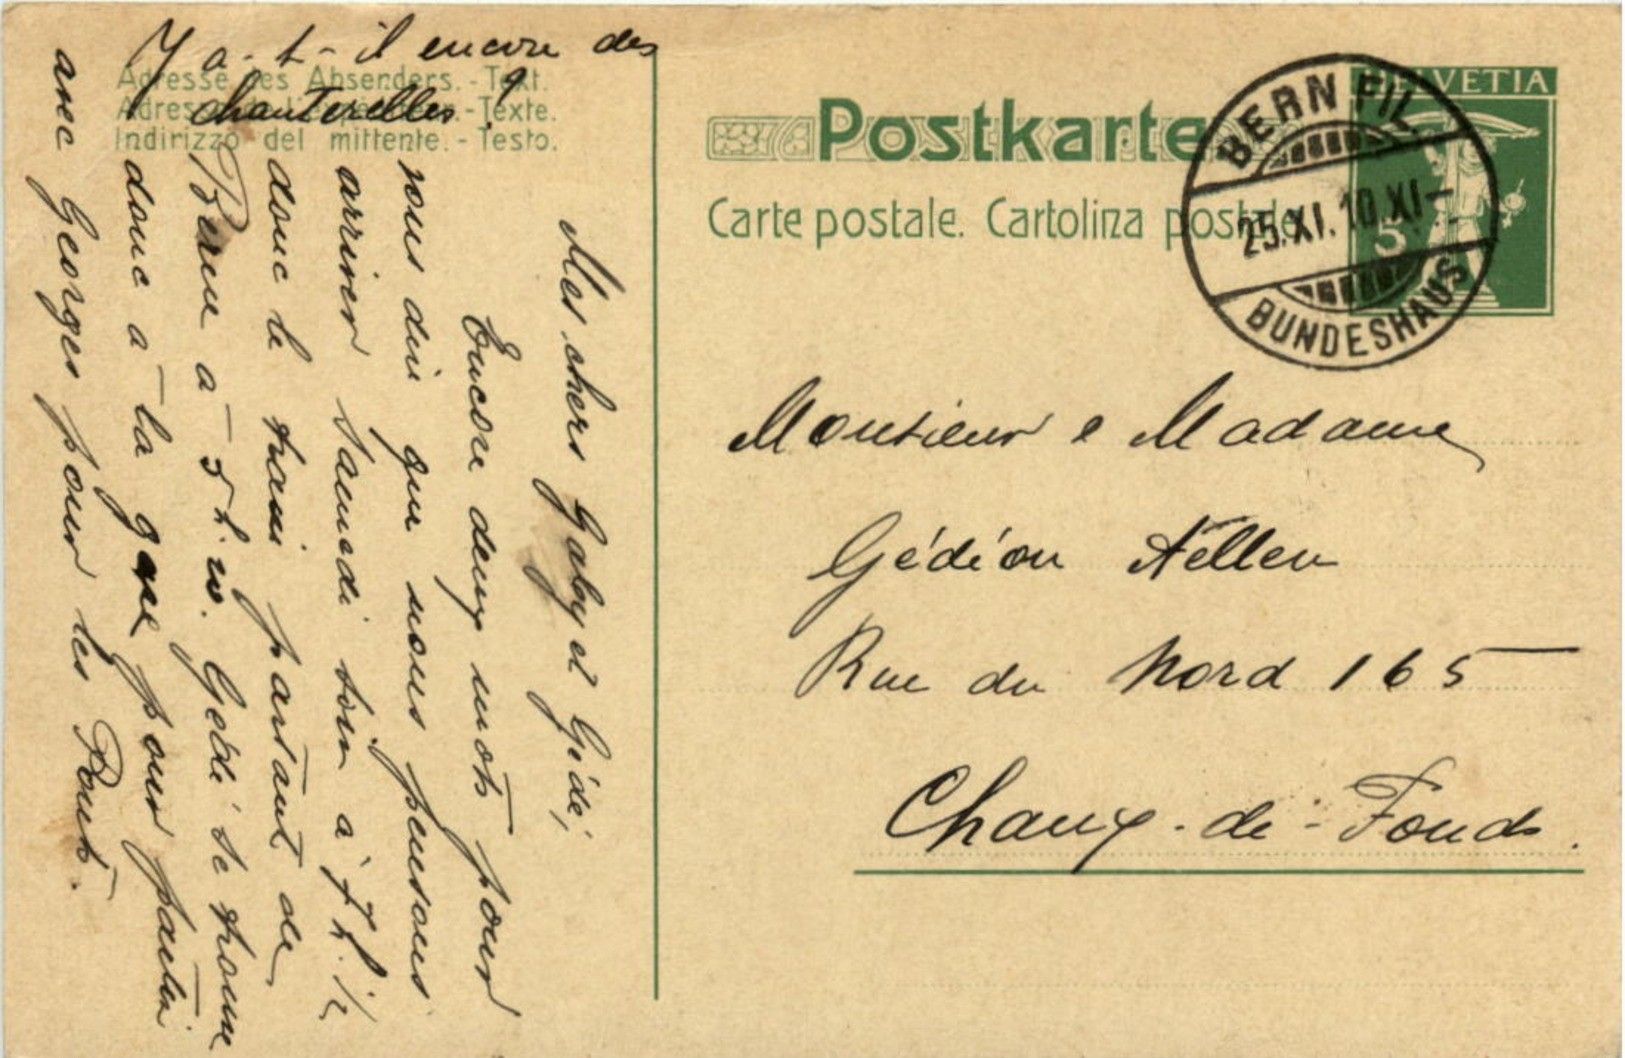 Y a-t-il encore des
chanterelles ?
Adresse des Absenders. - Text.
- Texte.
Indirizzo del mittente. - Testo.
Mes chers Gaby et Gédé,
Encore deux mots pour
vous dire que nous pensons
arriver samedi soir à 7 h. 1/2
donc le train partant de
Berne à 5 h. 20. Gédé se trouve
donc à la gare pour partir
avec Georges pour les Ponts.
Postkarte
Carte postale. Cartolina postale.
HELVETIA
5
BERN FIL.
25.XI.10.XI-
BUNDESHAUS
Monsieur e Madame
Gédéon Aellen
Rue du Nord 165
Chaux-de-Fonds.